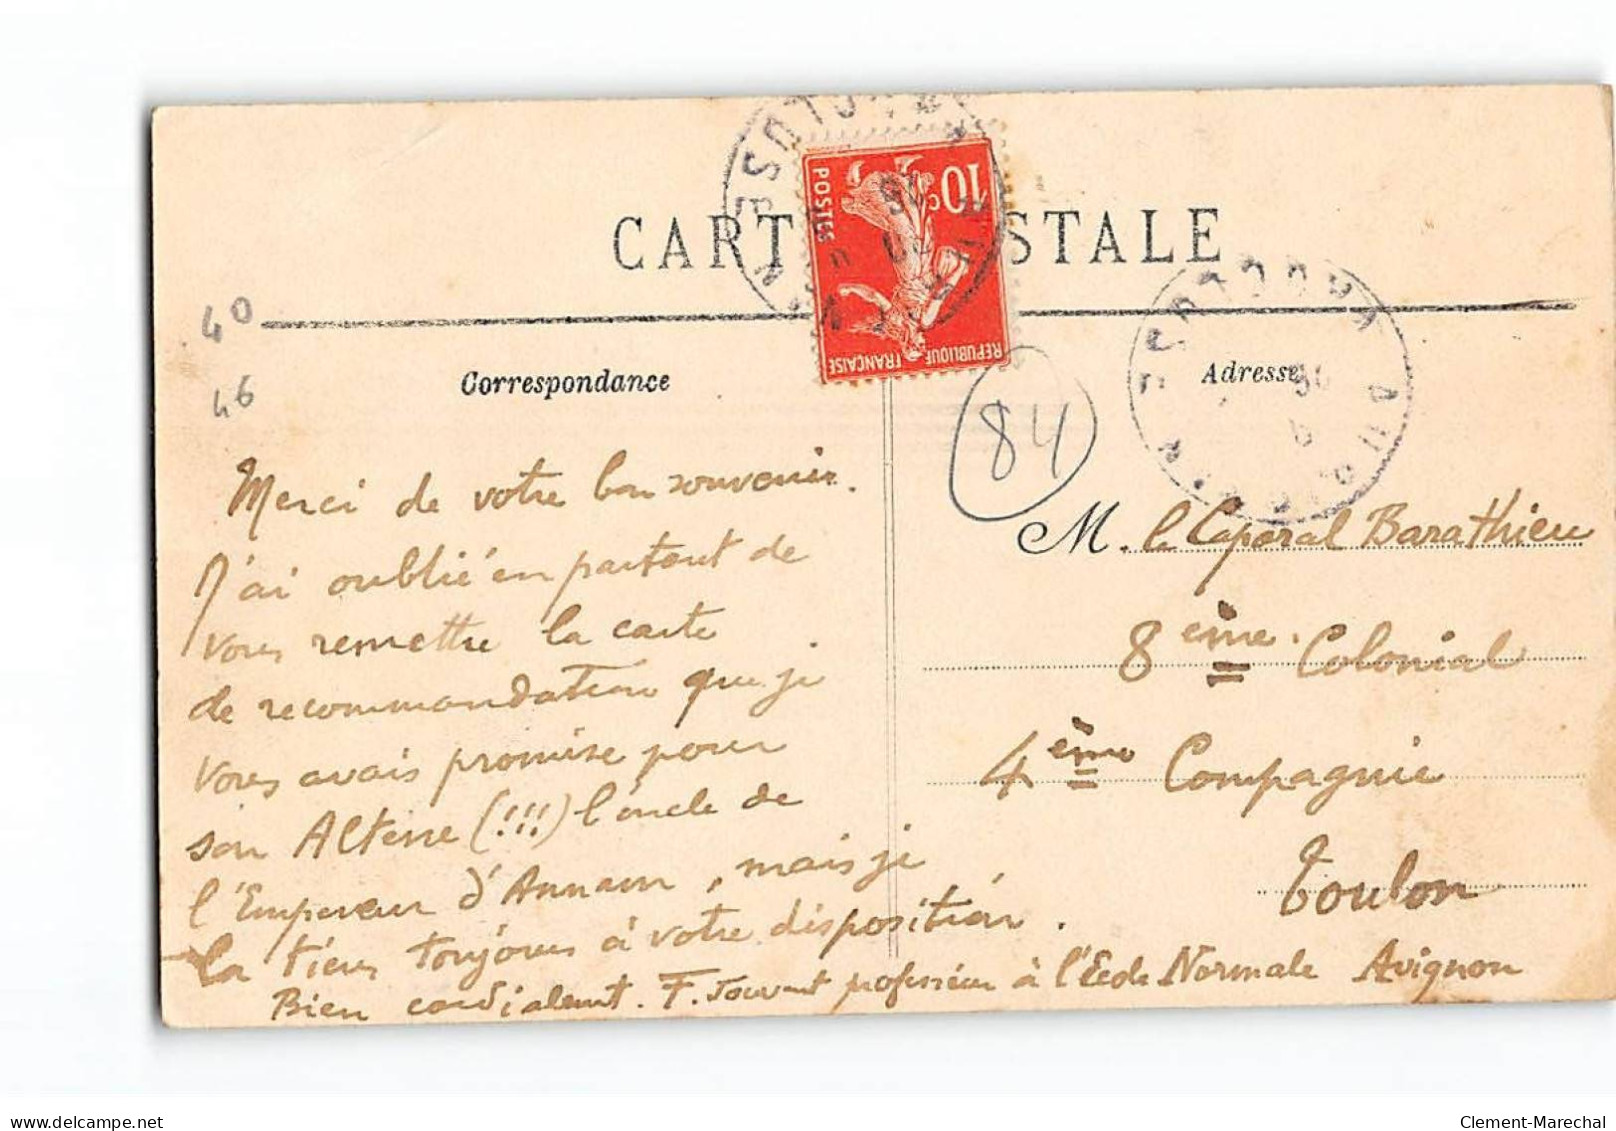 CARTE POSTALE
10c
POSTES
REPUBLIQUE FRANÇAISE
VAUCLUSE
AVIGNON
40
46
Correspondance
Adresse
84
Merci de votre bon souvenir.
J'ai oublié en partant de
vous remettre la carte
de recommandation que je
vous avais promise pour
son Altesse (!!!) l'oncle de
l'Empereur d'Annam, mais je
la tiens toujours à votre disposition.
Bien cordialement. F. Jouvent professeur à l'Ecole Normale Avignon
M. le Caporal Barathieu
8ème Colonial
4ème Compagnie
Toulon
Clement-Marechal